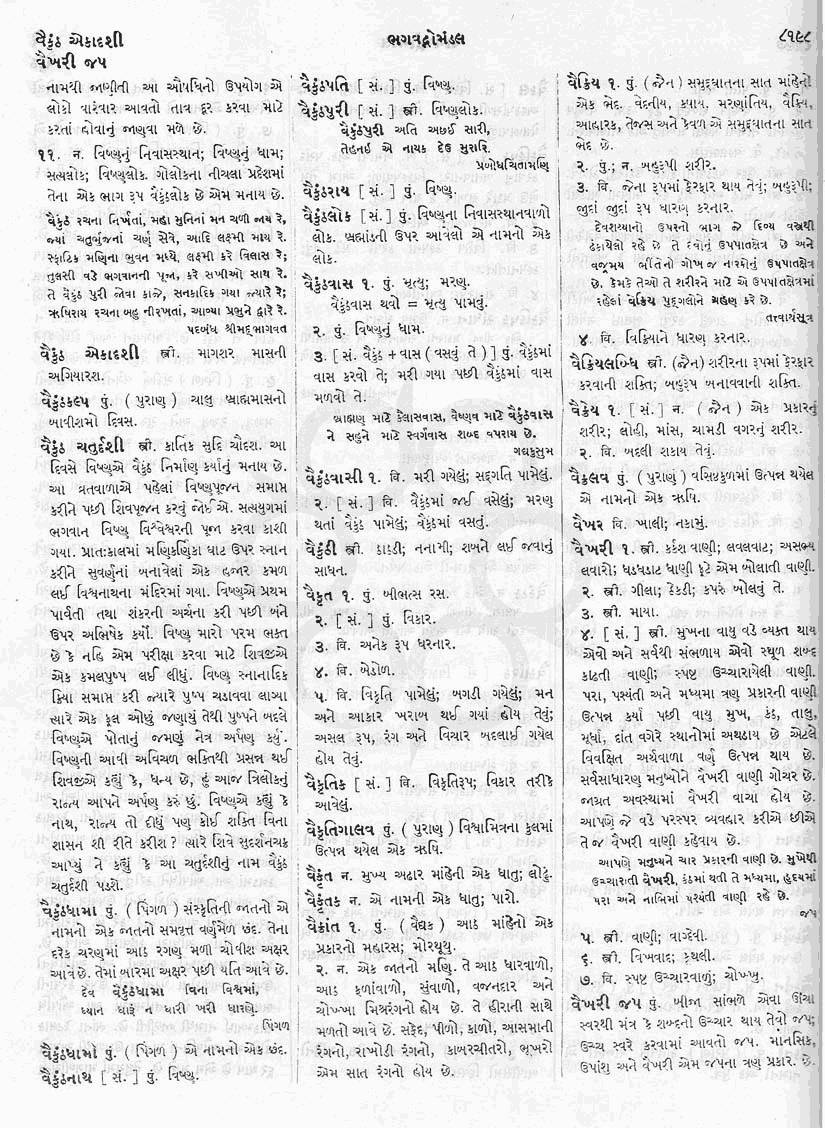 વૈકુંઠ એકાદશી
ભગવદ્ગોમંડલ
૮૧૯૮
વૈખરી જપ
નામથી જાણીતી આ ઔષધિનો ઉપયોગ એ
લોકો વારંવાર આવતો તાવ દૂર કરવા માટે
કરતાં હોવાનું જાણવા મળે છે.
૧૧. ન. વિષ્ણુનું નિવાસસ્થાન; વિષ્ણુનું ધામ;
સત્યલોક; વિષ્ણુલોક. ગોલોકના નીચલા પ્રદેશમાં
તેના એક ભાગ રૂપ વૈકુંઠલોક છે એમ મનાય છે.
વૈકુંઠ રચના નિર્ખતાં, મહા મુનિતાં મન ચળી જાય રે,
જ્યાં ચતુર્ભુજનાં ચર્ણ સેવે, આદિ લક્ષ્મી માય રે.
સ્ફાટિક મણિના ભુવન મધ્યે, લક્ષ્મી કરે વિલાસ રે;
તુલસી વડે ભગવાનની પૂજા, કરે સખીઓ સાથ રે.
તે વૈકુંઠ પુરી જોવા કાજે, સનકાદિક ગયા જ્યારે રે;
ઋષિરાય રચના બહુ નીરખતાં, આવ્યા પ્રભુને દ્વારે રે.
પદબંધ શ્રીમદ્ભાગવત
વૈકુંઠ એકાદશી સ્ત્રી. માગશર માસની
અગિયારશ.
વૈકુંઠકલ્પ પું. ( પુરાણ ) ચાલુ બ્રાહ્મમાસનો
બાવીશમો દિવસ.
વૈકુંઠ ચતુર્દશી સ્ત્રી. કાર્તિક સુદિ ચૌદશ. આ
દિવસે વિષ્ણુએ વૈકુંઠ નિર્માણ કર્યાનું મનાય છે.
આ વ્રતવાળાએ પહેલાં વિષ્ણુપૂજન સમાપ્ત
કરીને પછી શિવપૂજન કરવું જોઈએ. સત્યયુગમાં
ભગવાન વિષ્ણુ વિશ્વેશ્વરની પૂજા કરવા કાશી
ગયા. પ્રાતઃકાલમાં મણિકર્ણિકા ઘાટ ઉપર સ્નાન
કરીને સુવર્ણનાં બનાવેલાં એક હજાર કમળ
લઈ વિશ્વનાથના મંદિરમાં ગયા. વિષ્ણુએ પ્રથમ
પાર્વતી તથા શંકરની અર્ચના કરી પછી બંને
ઉપર અભિષેક કર્યો. વિષ્ણુ મારો પરમ ભક્ત
છે કે નહિ એમ પરીક્ષા કરવા માટે શિવજીએ
એક કમલપુષ્પ લઈ લીધું. વિષ્ણુ સ્નાનાદિક
ક્રિયા સમાપ્ત કરી જ્યારે પુષ્પ ચડાવવા લાગ્યા
ત્યારે એક ફૂલ ઓછું જણાયું તેથી પુષ્પને બદલે
વિષ્ણુએ પોતાનું જમણું નેત્ર અર્પણ કર્યું.
વિષ્ણુની આવી અવિચળ ભક્તિથી પ્રસન્ન થઈ
શિવજીએ કહ્યું કે, ધન્ય છે, હું આજ ત્રિલોકનું
રાજ્ય આપને અર્પણ કરું છું. વિષ્ણુએ કહ્યું કે
નાથ, રાજ્ય તો દીધું પણ કોઈ શક્તિ વિના
શાસન શી રીતે કરીશ ? ત્યારે શિવે સુદર્શનચક્ર
આપ્યું ને કહ્યું કે આ ચતુર્દશીનું નામ વૈકુંઠ
ચતુર્દશી પડશે.
વૈકુંઠધામા પું. ( પિંગળ ) સંસ્કૃતિની જાતનો એ
નામનો એક જાતનો સમવૃત્ત વર્ણમેળ છંદ. તેના
દરેક ચરણમાં આઠ રગણ મળી ચોવીશ અક્ષર
આવે છે. તેમાં બારમા અક્ષર પછી યતિ આવે છે.
દેવ વૈકુંઠધામા વિના વિશ્વમાં,
ધ્યાન ધારું ન ધારી ખરી ધારણુ.
પિંગળ
વૈકુંઠધામો પું. ( પિંગળ ) એ નામનો એક છંદ.
વૈકુંઠનાથ [ સં. ] પું. વિષ્ણુ.
વૈકુંઠપતિ [ સં. ] પું. વિષ્ણુ.
વૈકુંઠપુરી [ સં. ] સ્ત્રી. વિષ્ણુલોક.
વૈકુંઠપુરી અતિ અછઈ સારી,
તેહનઇ એ નાયક દેઉ મુરારિ.
પ્રબોધચિંતામણિ
વૈકુંઠરાય [ સં. ] પું. વિષ્ણુ.
વૈકુંઠલોક [ સં. ] પું. વિષ્ણુના નિવાસસ્થાનવાળો
લોક. બ્રહ્માંડની ઉપર આવેલો એ નામનો એક
લોક.
વૈકુંઠવાસ ૧. પું. મૃત્યુ; મરણ.
વૈકુંઠવાસ થવો = મૃત્યુ પામવું.
૨. પું. વિષ્ણુનું ધામ.
૩. [ સં. વૈકુંઠ + વાસ ( વસવું તે ) ] પું. વૈકુંઠમાં
વાસ કરવો તે; મરી ગયા પછી વૈકુંઠમાં વાસ
મળવો તે.
બ્રાહ્મણ માટે કૈલાસવાસ, વૈષ્ણવ માટે વૈકુંઠવાસ
ને સહુને માટે સ્વર્ગવાસ શબ્દ વપરાય છે.
ગદ્યકુસુમ
વૈકુંઠવાસી ૧. વિ. મરી ગયેલું; સદ્ગતિ પામેલું.
૨. [ સં. ] વિ. વૈકુંઠમાં જઈ વસેલું; મરણ
થતાં વૈકુંઠ પામેલું; વૈકુંઠમાં વસતું.
વૈકુંઠી સ્ત્રી. ઠાઠડી; નનામી; શબને લઈ જવાનું
સાધન.
વૈકૃત ૧. પું. બીભત્સ રસ.
૨. [ સં. ] પું. વિકાર.
૩. વિ. અનેક રૂપ ધરનાર.
૪. વિ. બેડોળ.
૫. વિ. વિકૃતિ પામેલું; બગડી ગયેલું; મન
અને આકાર ખરાબ થઈ ગયાં હોય તેવું;
અસલ રૂપ, રંગ અને વિચાર બદલાઈ ગયેલ
હોય તેવું.
વૈકૃતિક [ સં. ] વિ. વિકૃતિરૂપ; વિકાર તરીકે
આવેલું.
વૈકૃતિગાલવ પું. ( પુરાણ ) વિશ્વામિત્રના કુલમાં
ઉત્પન્ન થયેલ એક ઋષિ.
વૈકૃંત ન. મુખ્ય અઢાર માંહેની એક ધાતુ; લોઢું.
વૈકૃંતક ન. એ નામની એક ધાતુ; પારો.
વૈક્રાંત ૧. પું. ( વૈદ્યક ) આઠ માંહેનો એક
પ્રકારનો મહારસ; મોરથૂથુ.
૨. ન. એક જાતનો મણિ. તે આઠ ધારવાળો,
આઠ ફળાંવાળો, સુંવાળો, વજનદાર અને
ચોખ્ખા મિશ્રરંગનો હોય છે. તે હીરાની સાથે
મળતો આવે છે. સફેદ, પીળો, કાળો, આસમાની
રંગનો, રાખોડી રંગનો, કાબરચીતરો, ભૂખરો
એમ સાત રંગનો હોય છે.
વૈક્રિય ૧. પું. ( જૈન ) સમુદ્ઘાતના સાત માંહેનો
એક ભેદ. વેદનીય, કષાય, મરણાંતિય, વૈક્રિય,
આહારક, તેજસ અને કેવળ એ સમુદ્ઘાતના સાત
ભેદ છે.
૨. પું.; ન. બહુરૂપી શરીર.
૩. વિ. જેના રૂપમાં ફેરફાર થાય તેવું; બહુરૂપી;
જુદાં જુદાં રૂપ ધારણ કરનાર.
દેવશય્યાનો ઉપરનો ભાગ જે દિવ્ય વસ્ત્રથી
ઢંકાયેલો રહે છે તે દેવોનું ઉપપાતક્ષેત્ર છે અને
વજ્રમય ભીંતેનો ગોખ જ નારકોનું ઉપપાતક્ષેત્ર
છે. કેમકે તેઓ તે શરીરને માટે એ ઉપપાતક્ષેત્રમાં
રહેલાં વૈક્રિય પુદ્ગલોને ગ્રહણ કરે છે.
તત્ત્વાર્થસૂત્ર
૪. વિ. વિક્રિયાને ધારણ કરનાર.
વૈક્રિયલબ્ધિ સ્ત્રી. (જૈન) શરીરના રૂપમાં ફેરફાર
કરવાની શક્તિ; બહુરૂપ બનાવવાની શક્તિ.
વૈક્રેય ૧. [ સં. ] ન. ( જૈન ) એક પ્રકારનું
શરીર; લોહી, માંસ, ચામડી વગરનું શરીર.
૨. વિ. બદલી શકાય તેવું.
વૈક્લવ પું. ( પુરાણ ) વસિષ્ઠકુળમાં ઉત્પન્ન થયેલ
એ નામનો એક ઋષિ.
વૈખર વિ. ખાલી; નકામું.
વૈખરી ૧. સ્ત્રી. કર્કશ વાણી; લવલવાટ; અસભ્ય
લવારો; ધડધડાટ ધાણી ફૂટે એમ બોલાતી વાણી.
૨. સ્ત્રી. ગીલા; ઠેકડી; કપરું બોલવું તે.
૩. સ્ત્રી. માયા.
૪. [ સં. ] સ્ત્રી. મુખના વાયુ વડે વ્યક્ત થાય
એવો અને સર્વથી સંભળાય એવો સ્થૂળ શબ્દ
કાઢતી વાણી; સ્પષ્ટ ઉચ્ચારાયેલી વાણી.
પરા, પશ્યંતી અને મધ્યમા ત્રણ પ્રકારની વાણી
ઉત્પન્ન કર્યા પછી વાયુ મુખ, કંઠ, તાલુ,
મૂર્ધા, દાંત વગેરે સ્થાનોમાં અથડાય છે એટલે
વિવક્ષિત અર્થવાળા વર્ણ ઉત્પન્ન થાય છે.
સર્વસાધારણ મનુષ્યોને વૈખરી વાણી ગોચર છે.
જાગ્રત અવસ્થામાં વૈખરી વાચા હોય છે.
આપણે જે વડે પરસ્પર વ્યવહાર કરીએ છીએ
તે જ વૈખરી વાણી કહેવાય છે.
આપણે મનુષ્યને ચાર પ્રકારની વાણી છે. મુખેથી
ઉચ્ચારાતી વૈખરી, કંઠમાં થતી તે મધ્યમા, હૃદયમાં
પરા અને નાભિમાં પશ્યંતી વાણી રહે છે.
જપ
૫. સ્ત્રી. વાણી; વાગ્દેવી.
૬. સ્ત્રી. વિખવાદ; કથલી.
૭. વિ. સ્પષ્ટ ઉચ્ચારવાળું; ચોખ્ખું.
વૈખરી જપ પું. બીજા સાંભળે એવા ઊંચા
સ્વરથી મંત્ર કે શબ્દનો ઉચ્ચાર થાય તેવો જપ;
ઉચ્ચ સ્વરે કરવામાં આવતો જપ. માનસિક,
ઉપાંશુ અને વૈખરી એમ જપના ત્રણ પ્રકાર. છે.